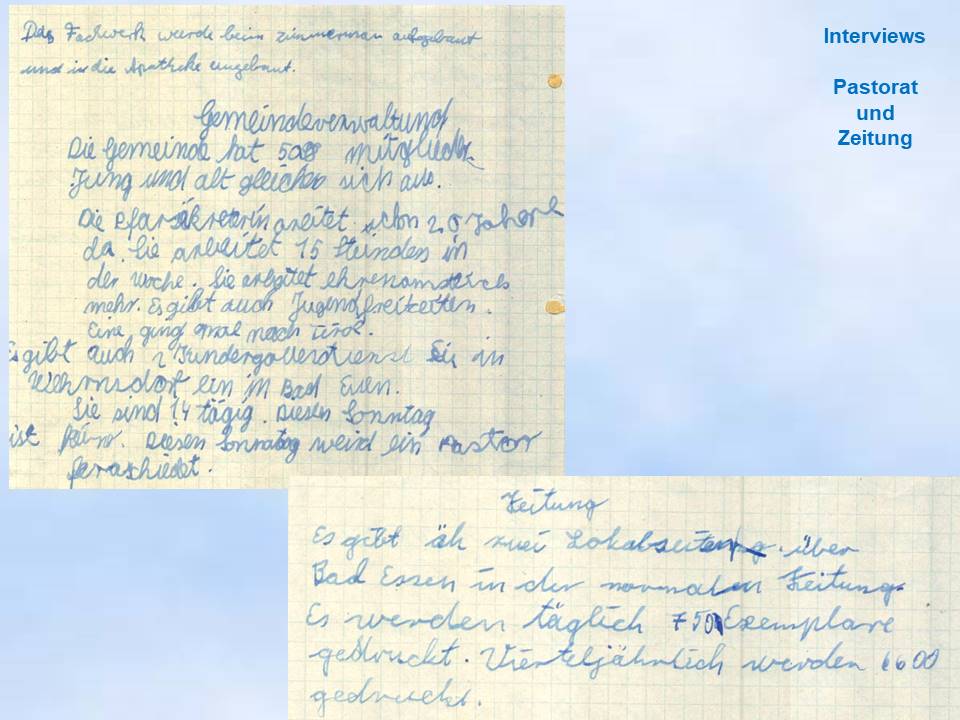 Das Fachwerk wurde beim zimmerman aufgebaut
und in die Apotheke eingebaut.
Gemeindeverwaltung
Die Gemeinde hat mitglieder
Jung und alt gleichen sich aus.
Die arbeitet schon 20 Jahre
da. Sie arbeitet 15 Stunden in
der Woche. Sie arbeitet
mehr. Es gibt auch Jugendfreizeiten.
Eine ging mal nach
Es gibt auch 2 in
ein in Bad Essen.
Sie sind 14 tägig. Diesen Sonntag
ist Diesen Sonntag weird ein Pastor
feraschiedet.
Zeitung
Es gibt äh zwei über
Bad Essen in der normalen Zeitung.
Es werden täglich Exemplare
gedruckt. Vierteljährlich werden 6600
gedruckt.
Interviews
Pastorat
und
Zeitung